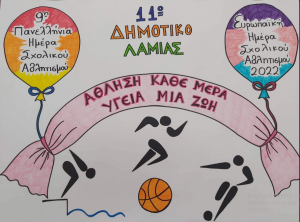 9η
Πανελλήνια
Ημέρα
Σχολικού
Αθλητισμού
11ο
ΔΗΜΟΤΙΚΟ
ΛΑΜΙΑΣ
Ευρωπαϊκή
Ημέρα
Σχολικού
Αθλητισμού
2022
ΑΘΛΗΣΗ ΚΑΘΕ ΜΕΡΑ
ΥΓΕΙΑ ΜΙΑ ΖΩΗ